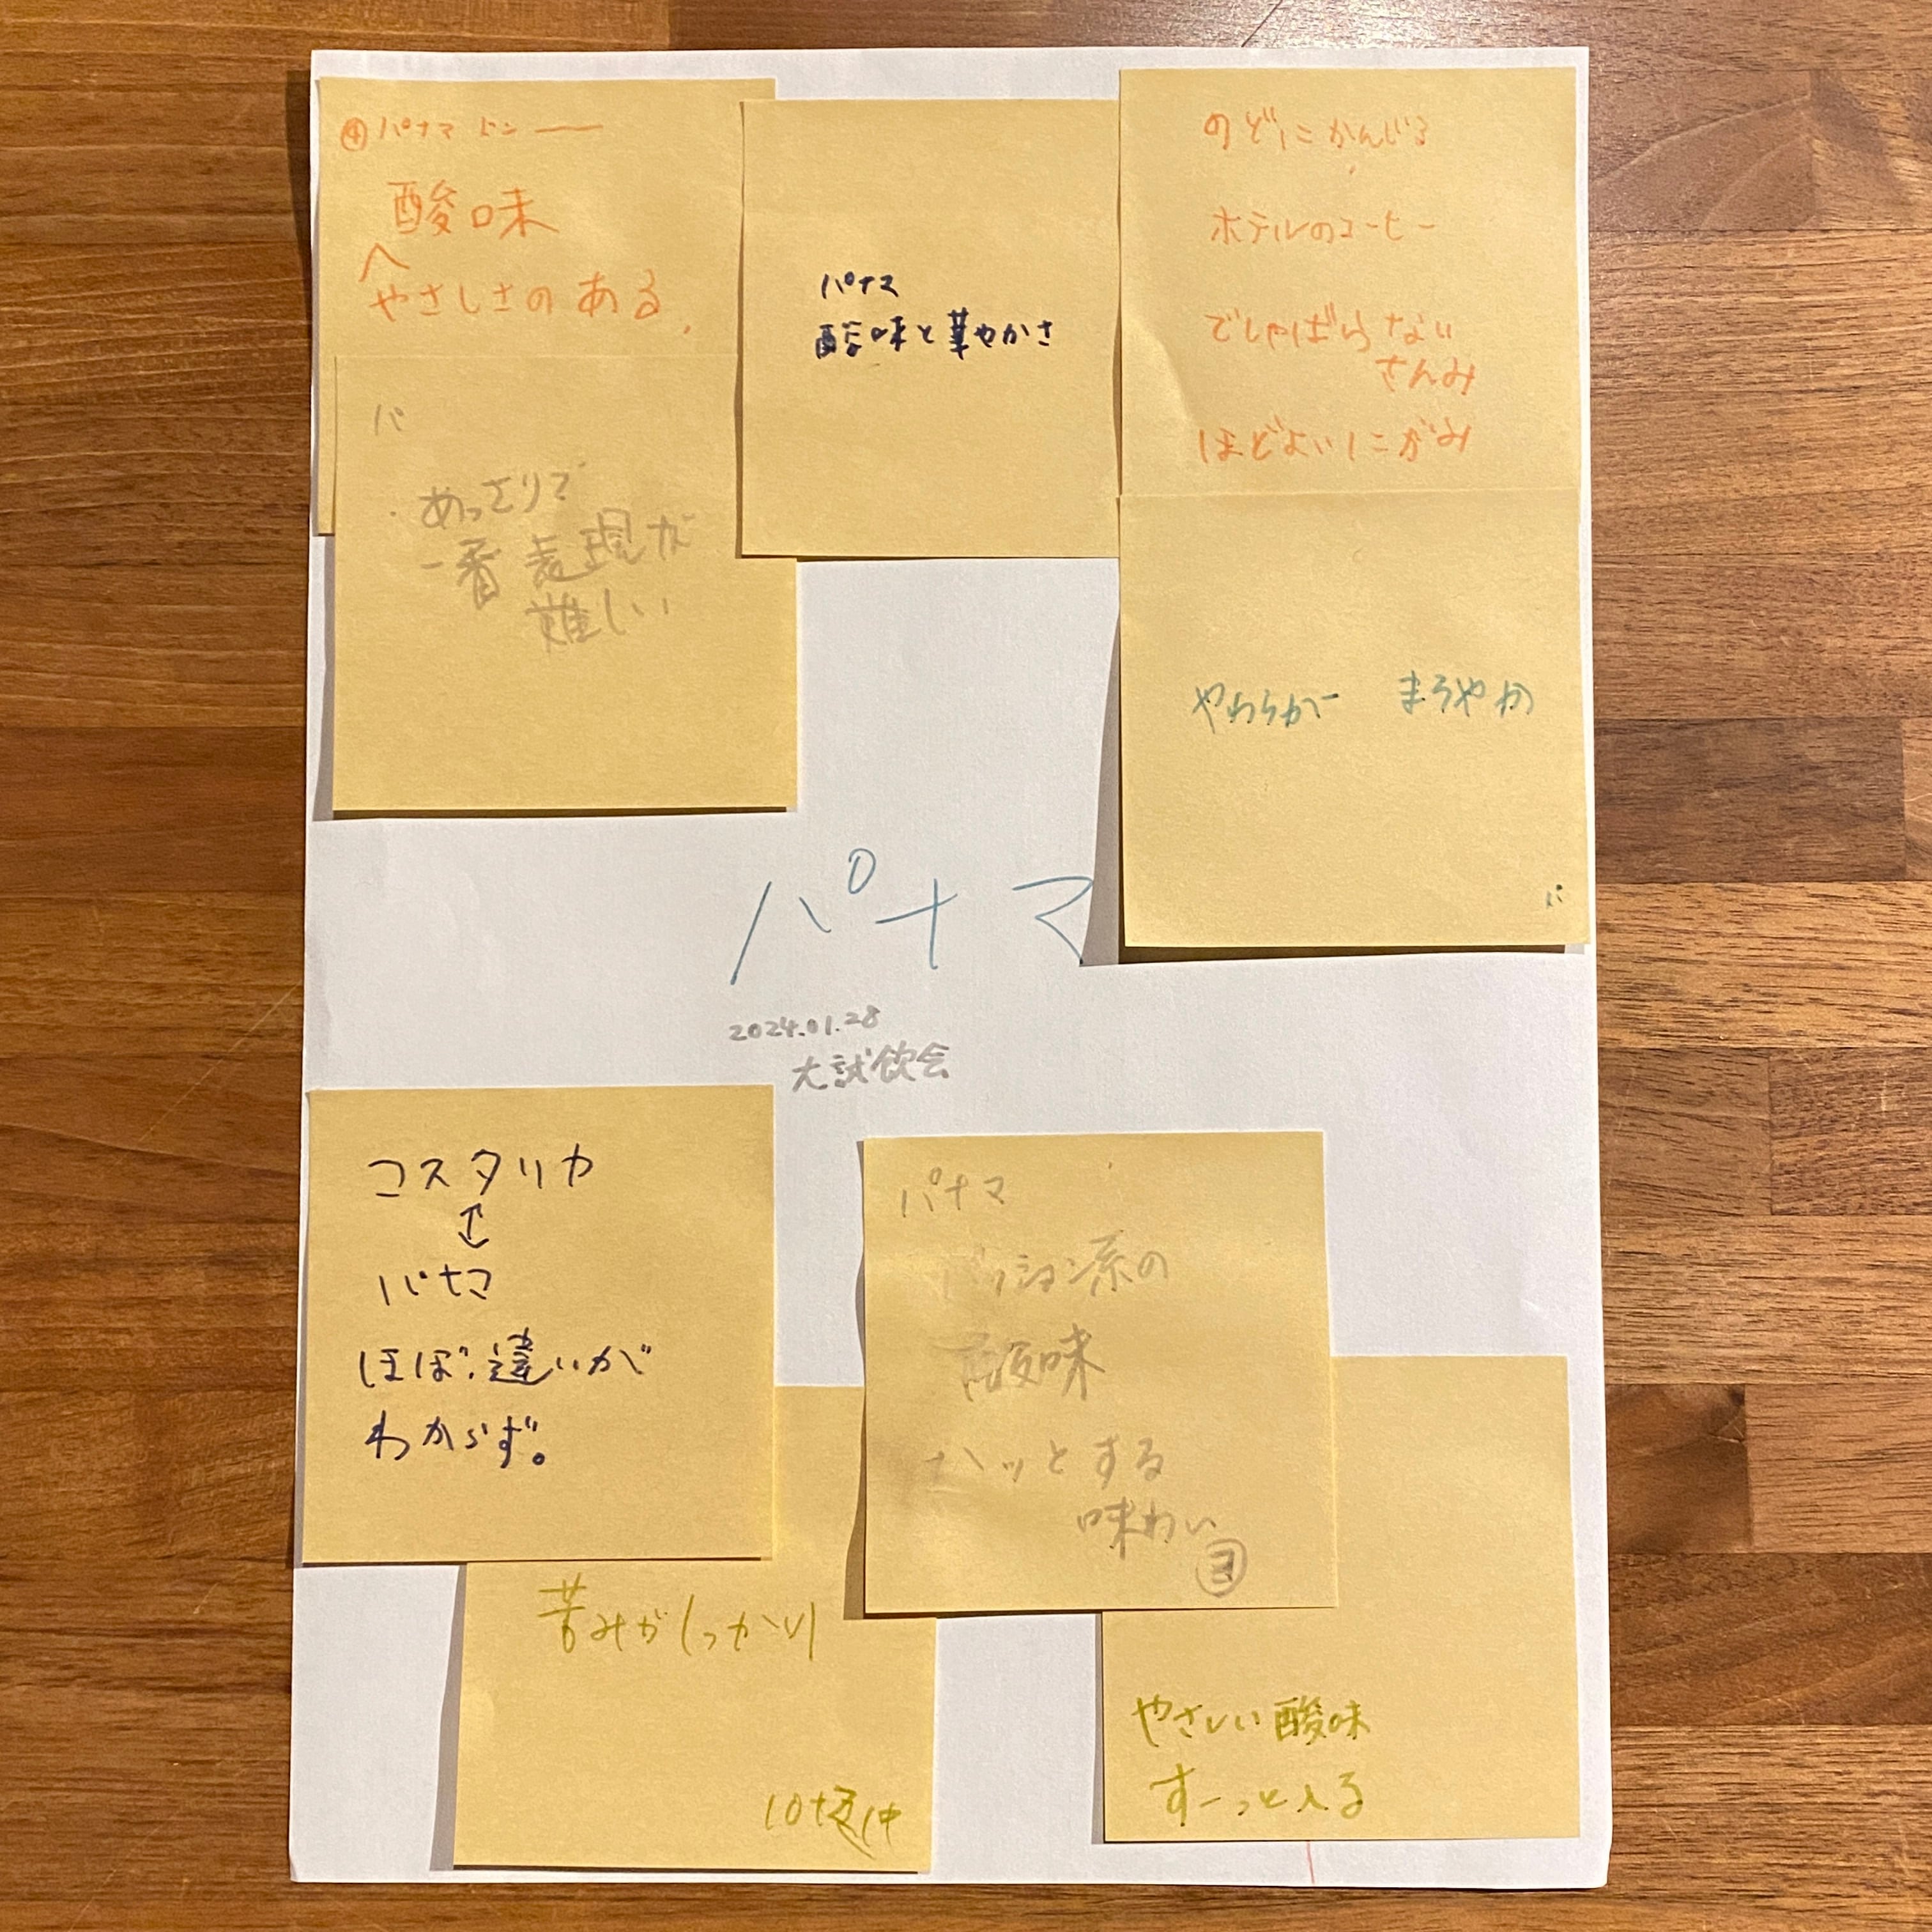 ④パナマ ドン——
酸味
へ
やさしさのある、
パナマ
酸味と華やかさ
のどにかんじる
ホテルのコーヒー
でしゃばらない
さんみ
ほどよいにがみ
パ
・あっさりで
一番表現が
難しい
やわらかー まろやか
パ
パナマ
2024.01.28
大試飲会
コスタリカ
↕
パナマ
ほぼ、違いが
わからず。
パナマ
パッション系の
酸味
ハッとする
味わい
ヨ
苦みがしっかり
やさしい酸味
すーっと入る